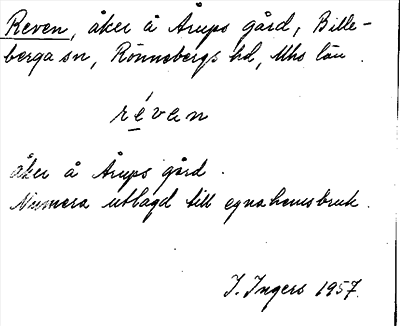 Reven, åker å Årups gård, Bille-
berga sn, Rönnebergs hd, Mhs län.
réven
åker å Årups gård.
Numera utlagd till egnahemsbruk.
I. Ingers 1957.